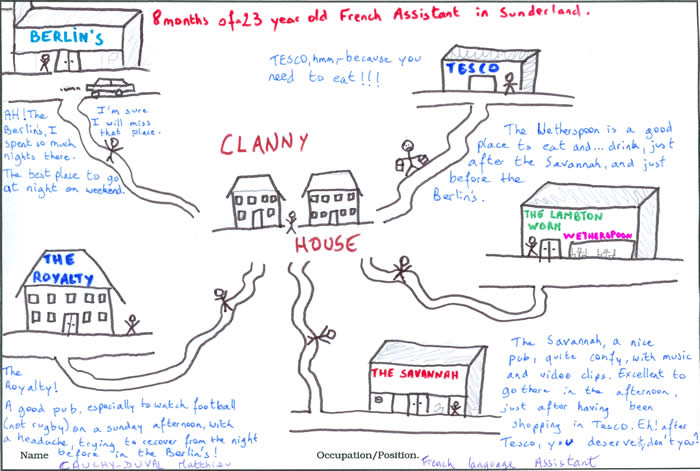 8 months of a 23 year old French Assistant in Sunderland.
BERLIN'S
AH! The
Berlin's, I
spent so much
nights there.
The best place to go
at night on weekend.
I'm sure
I will miss
that place.
TESCO, hmm, because you
need to eat!!!
TESCO
CLANNY
HOUSE
The Wetherspoon is a good
place to eat and... drink, just
after the Savannah, and just
before the
Berlin's.
THE LAMBTON
WORM
WETHERSPOON
THE
ROYALTY
The
Royalty!
A good pub, especially to watch football
(not rugby) on a sunday afternoon, with
a headache, trying to recover from the night
before in the Berlin's!
THE SAVANNAH
The Savannah, a nice
pub, quite comfy, with music
and video clips. Excellent to
go there in the afternoon,
just after having been
shopping in Tesco. Eh! after
Tesco, you deserve it, don't you?
Name
CAUCHY-DUVAL Matthieu
Occupation/Position.
French language Assistant